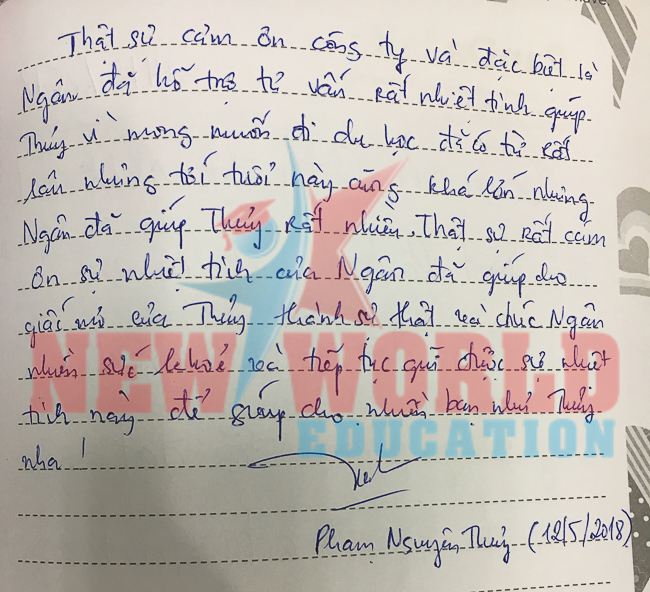 Thật sự cảm ơn công ty và đặc biệt là
Ngân đã hỗ trợ tư vấn rất nhiệt tình giúp
Thủy vì mong muốn đi du học đã có từ rất
lâu nhưng tới tuổi này cũng khá lớn nhưng
Ngân đã giúp Thủy rất nhiều. Thật sự rất cảm
ơn sự nhiệt tình của Ngân đã giúp cho
giấc mơ của Thủy thành sự thật và chúc Ngân
nhiều sức khoẻ và tiếp tục giữ được sự nhiệt
tình này để giúp cho nhiều bạn như Thủy
nha !
NEW WORLD
EDUCATION
Phạm Nguyên Thủy (12/5/2018)